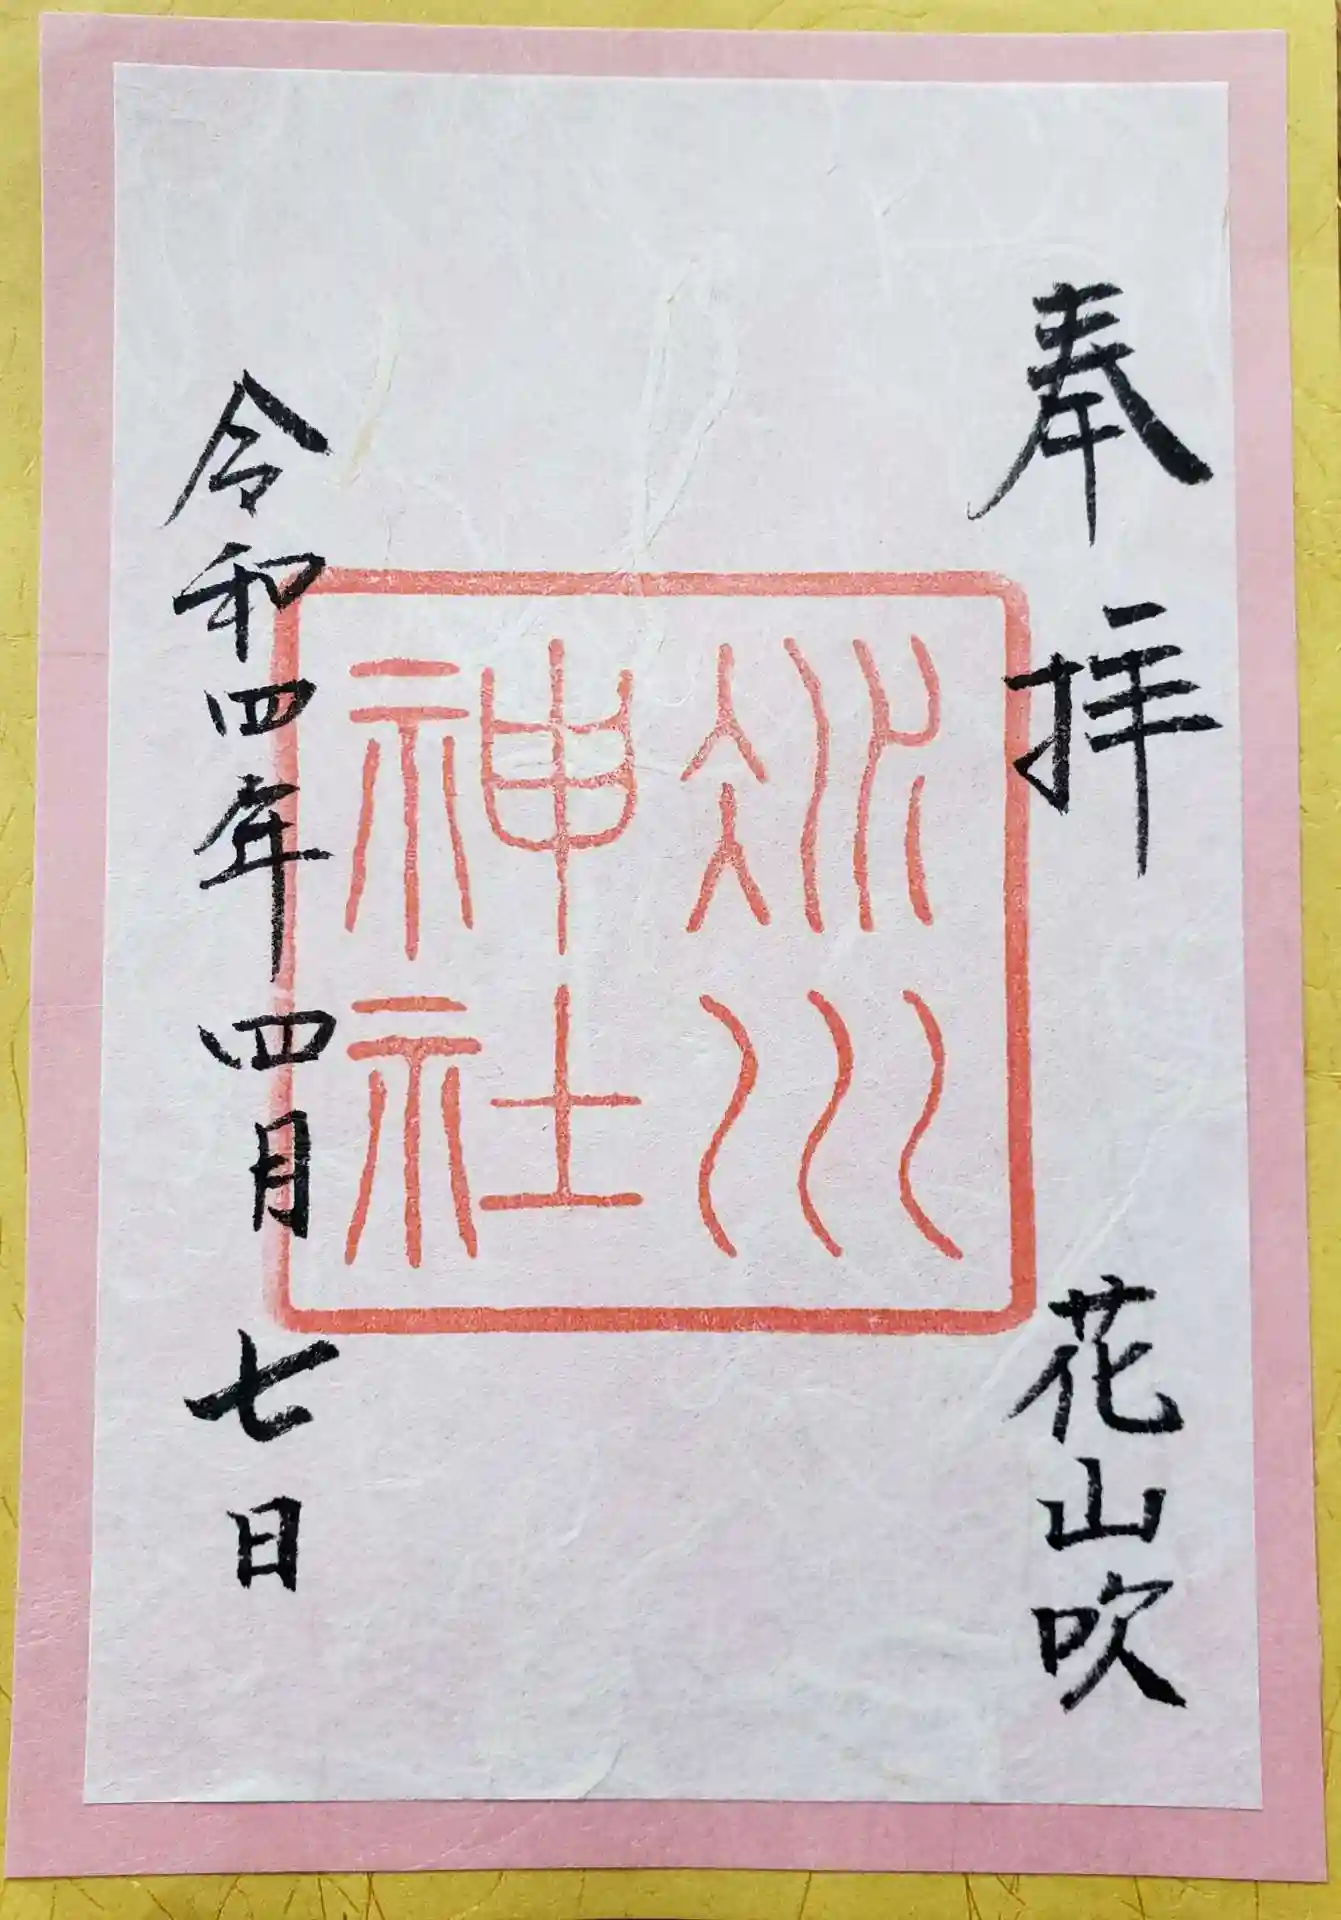 奉拝　花山吹
冰川
神社
令和四年四月七日